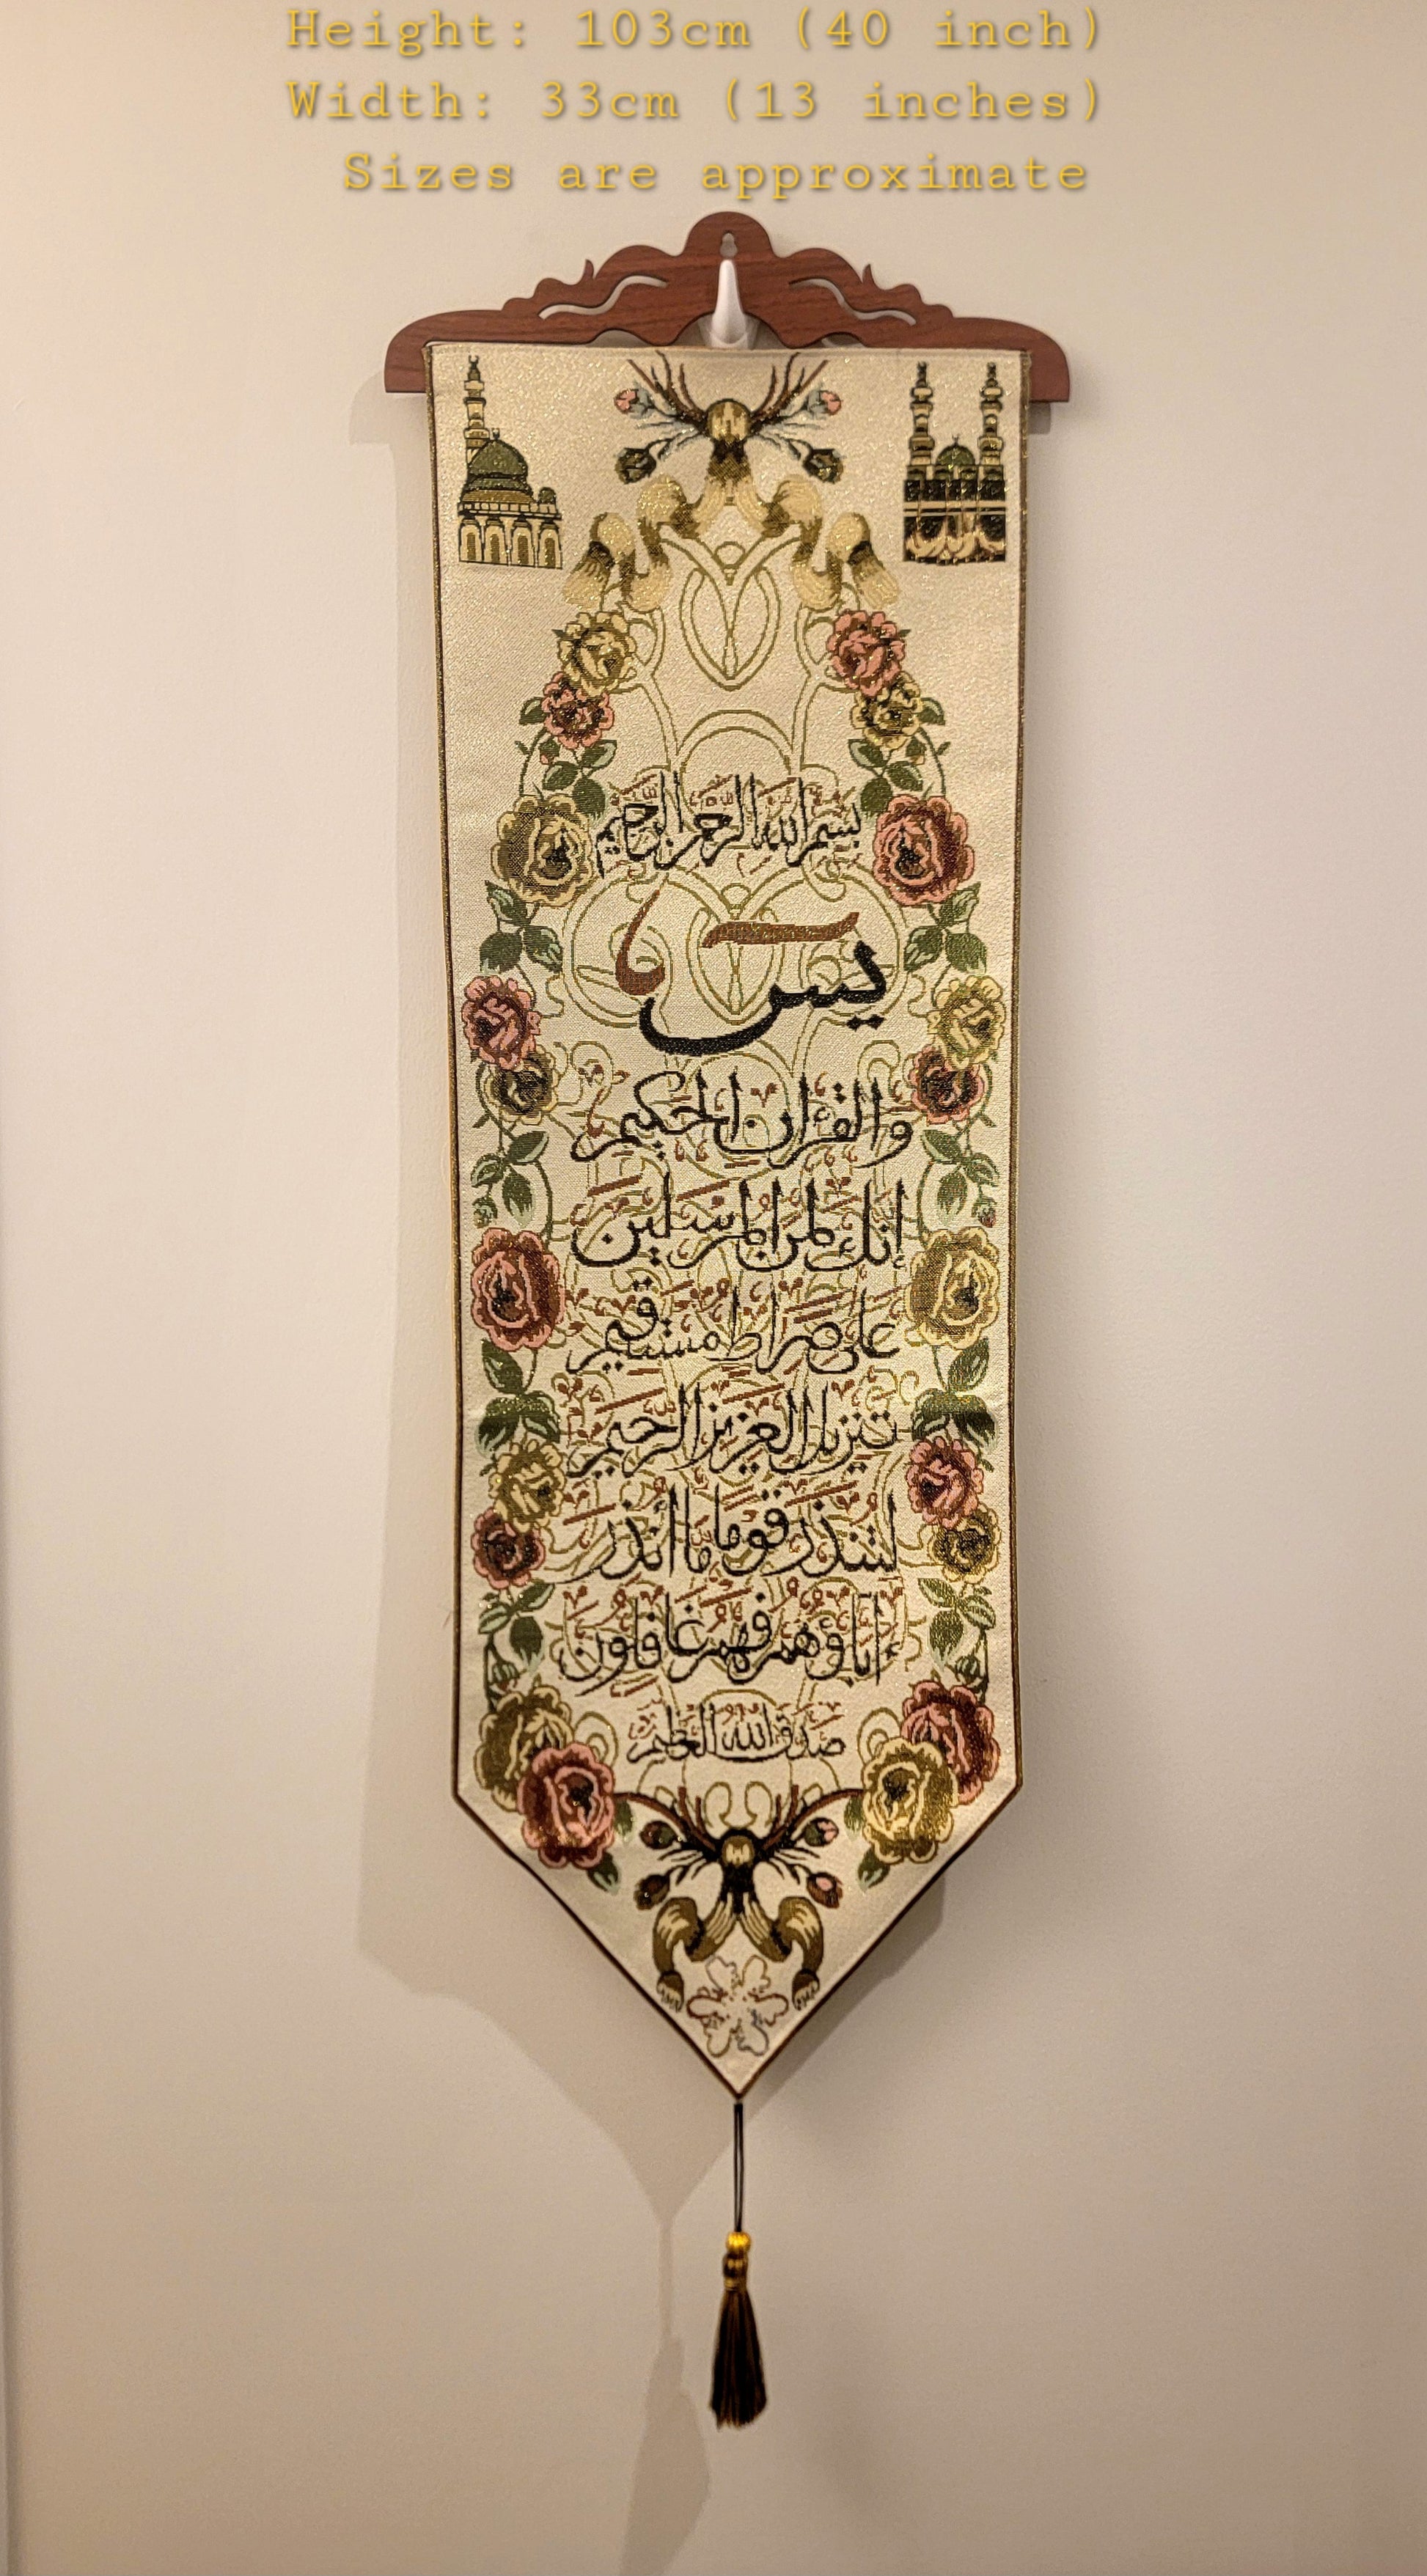 Height: 103cm (40 inch)
Width: 33cm (13 inches)
Sizes are approximate
بسم الله الرحمن الرحيم
يس
والقرآن الحكيم
إنك لمن المرسلين
على صراط مستقيم
تنزيل العزيز الرحيم
لتنذر قوما ما أنذر
ءاباؤهم فهم غافلون
صدق الله العظيم